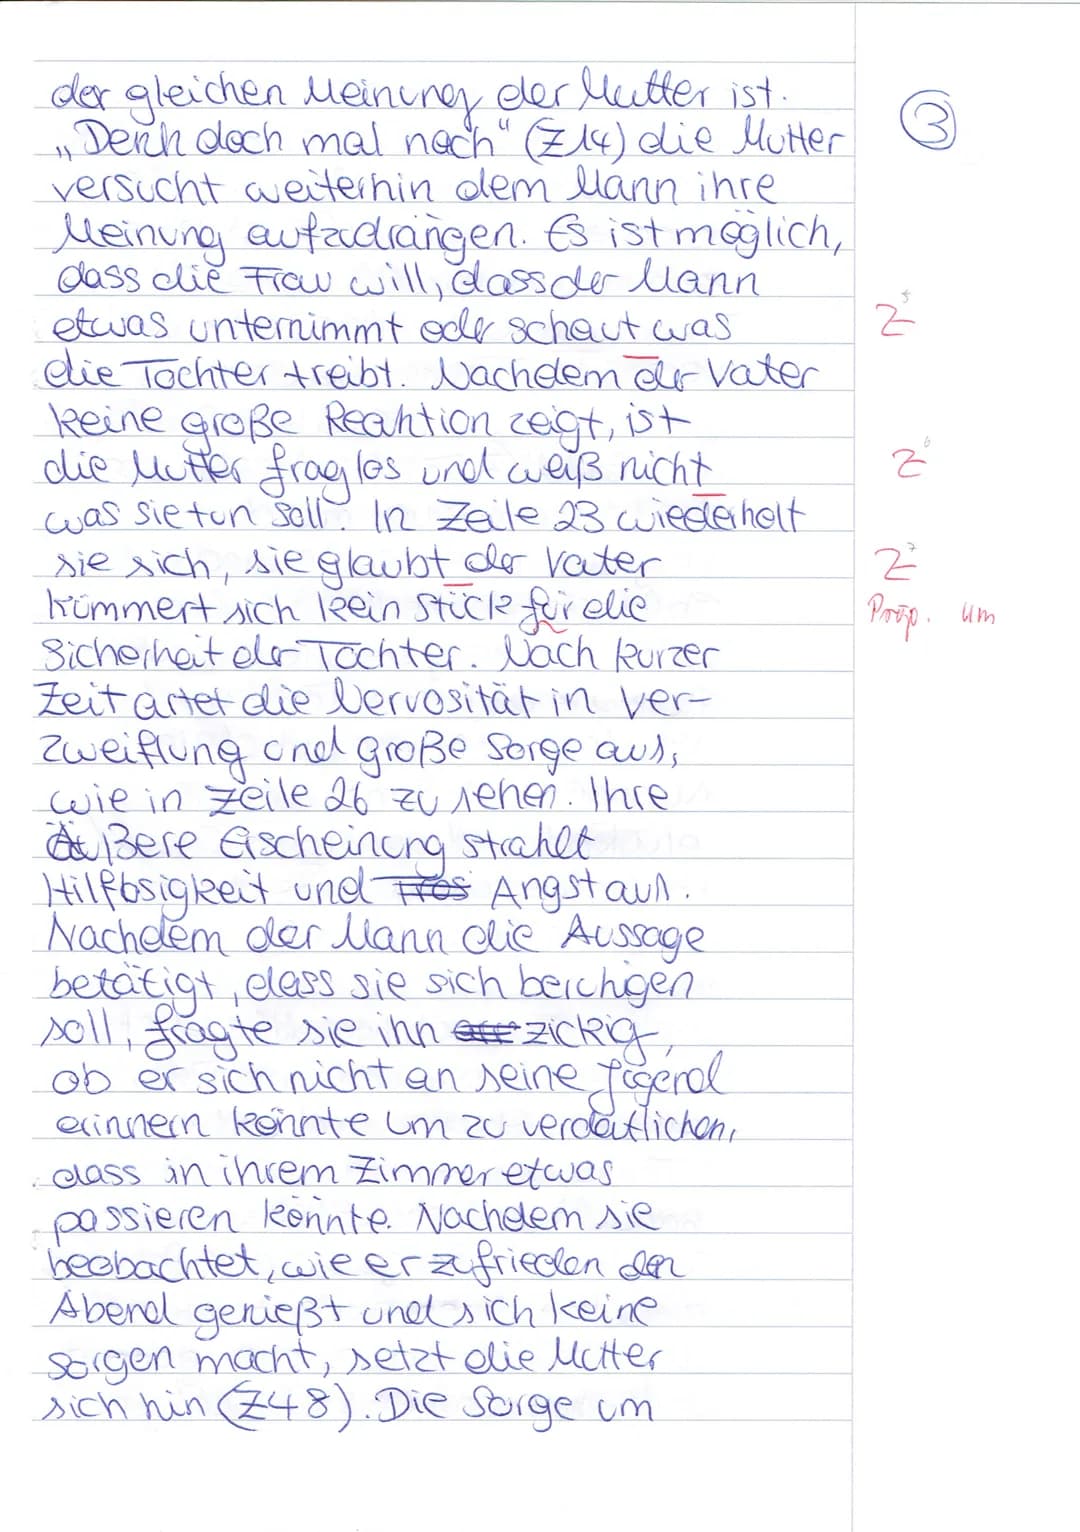 der gleichen Meinung der Mutter ist.
③
„Denk doch mal nach“ (Z14) die Mutter
versucht weiterhin dem Mann ihre
Meinung aufzudrängen. Es ist möglich,
dass die Frau will, dass der Mann
etwas unternimmt oder schaut was
Z⁵
die Tochter treibt. Nachdem der Vater
keine große Reaktion zeigt, ist
die Mutter fraglos und weiß nicht
Z⁶
was sie tun soll. In Zeile 23 wiederholt
sie sich, sie glaubt der Vater
Z⁷
kümmert sich kein Stück für die
Präp. um
Sicherheit der Tochter. Nach kurzer
Zeit artet die Nervosität in Ver-
zweiflung und große Sorge aus,
wie in Zeile 26 zu sehen. Ihre
Äußere Erscheinung strahlt
Hilflosigkeit und Angst aus.
Nachdem der Mann die Aussage
betätigt, dass sie sich beruhigen
soll, fragte sie ihn zickig,
ob er sich nicht an seine Jugend
erinnern könnte um zu verdeutlichen,
dass in ihrem Zimmer etwas
passieren könnte. Nachdem sie
beobachtet, wie er zufrieden den
Abend genießt und sich keine
sorgen macht, setzt die Mutter
sich hin (Z48). Die Sorge um